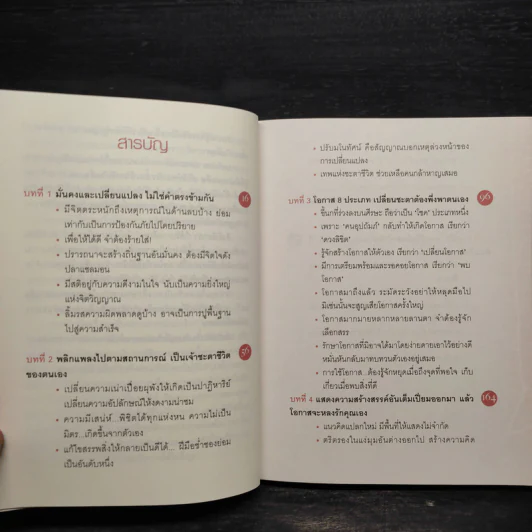 สารบัญ
บทที่ 1 มั่นคงและเปลี่ยนแปลง ไม่ใช่คำตรงข้ามกัน 16
• มีจิตตระหนักถึงเหตุการณ์ในด้านลบบ้าง ย่อม
เท่ากับเป็นการป้องกันภัยไปโดยปริยาย
• เพื่อให้ได้ดี จำต้องร้ายใส่!
• ปรารถนาจะสร้างถิ่นฐานอันมั่นคง ต้องมีจิตใจดัง
ปลาแซลมอน
• มีสติอยู่กับความดีงามในใจ นับเป็นความยิ่งใหญ่
แห่งจิตวิญญาณ
• ลิ้มรสความผิดพลาดดูบ้าง อาจเป็นการปูพื้นฐาน
ไปสู่ความสำเร็จ
บทที่ 2 พลิกแพลงไปตามสถานการณ์ เป็นเจ้าชะตาชีวิต 56
ของตนเอง
• เปลี่ยนความเน่าเปื่อยผุพังให้เกิดเป็นปาฏิหาริย์
เปลี่ยนความอัปลักษณ์ให้งดงามน่าชม
• ความมีเสน่ห์...พิชิตได้ทุกแห่งหน ความไม่เป็น
มิตร...เกิดขึ้นจากตัวเอง
• แก้ไขสรรพสิ่งให้กลายเป็นดีได้... ฝีมือช่ำของย่อม
เป็นอันดับหนึ่ง
• ปรับมโนทัศน์ คือสัญญาณบอกเหตุล่วงหน้าของ
การเปลี่ยนแปลง
• เทพแห่งชะตาชีวิต ช่วยเหลือคนกล้าหาญเสมอ
บทที่ 3 โอกาส 8 ประเภท เปลี่ยนชะตาต้องพึ่งพาตนเอง 96
• ขึ้นกที่ร่วงลงบนศีรษะ ถือว่าเป็น "โชค" ประเภทหนึ่ง
• เพราะ "คนอุปถัมภ์" กลับทำให้เกิดโอกาส เรียกว่า
"ดวงลิขิต"
• รู้จักสร้างโอกาสให้ตัวเอง เรียกว่า "เปลี่ยนโอกาส"
• มีการเตรียมพร้อมและรอคอยโอกาส เรียกว่า "พบ
โอกาส"
• โอกาสมาถึงแล้ว ระมัดระวังอย่าให้หลุดมือไป
มิเช่นนั้นจะสูญเสียโอกาสครั้งใหญ่
• โอกาสมากมายหลากหลายลานตา จำต้องรู้จัก
เลือกสรร
• รักษาโอกาสที่มิอาจได้มาโดยง่ายดายเอาไว้อย่างดี
หมั่นหันกลับมาทบทวนตัวเองอยู่เสมอ
• การใช้โอกาส..ต้องรู้จักหยุดเมื่อถึงจุดที่พอใจ เก็บ
เกี่ยวเมื่อพบสิ่งที่ดี
บทที่ 4 แสดงความสร้างสรรค์อันเต็มเปี่ยมออกมา แล้ว 164
โอกาสจะหลงรักคุณเอง
• แนวคิดแปลกใหม่ มีพื้นที่ให้แสดงไม่จำกัด
• ตริตรองในแง่มุมอันต่างออกไป สร้างความคิด